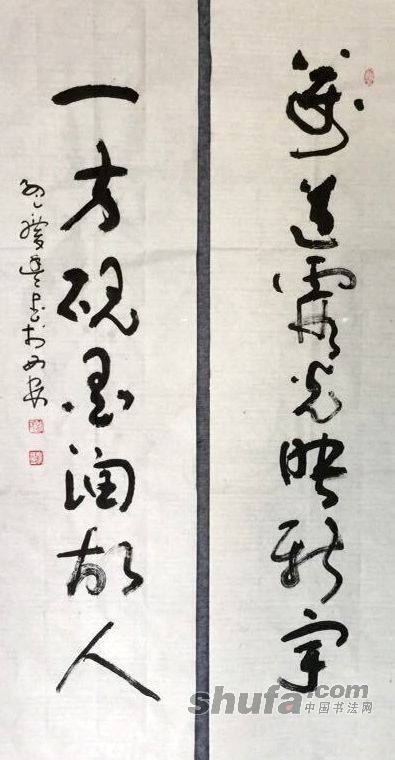 萬道霞光映新宇
一方砚墨润故人
书于西安
shufa.com
中国书法网